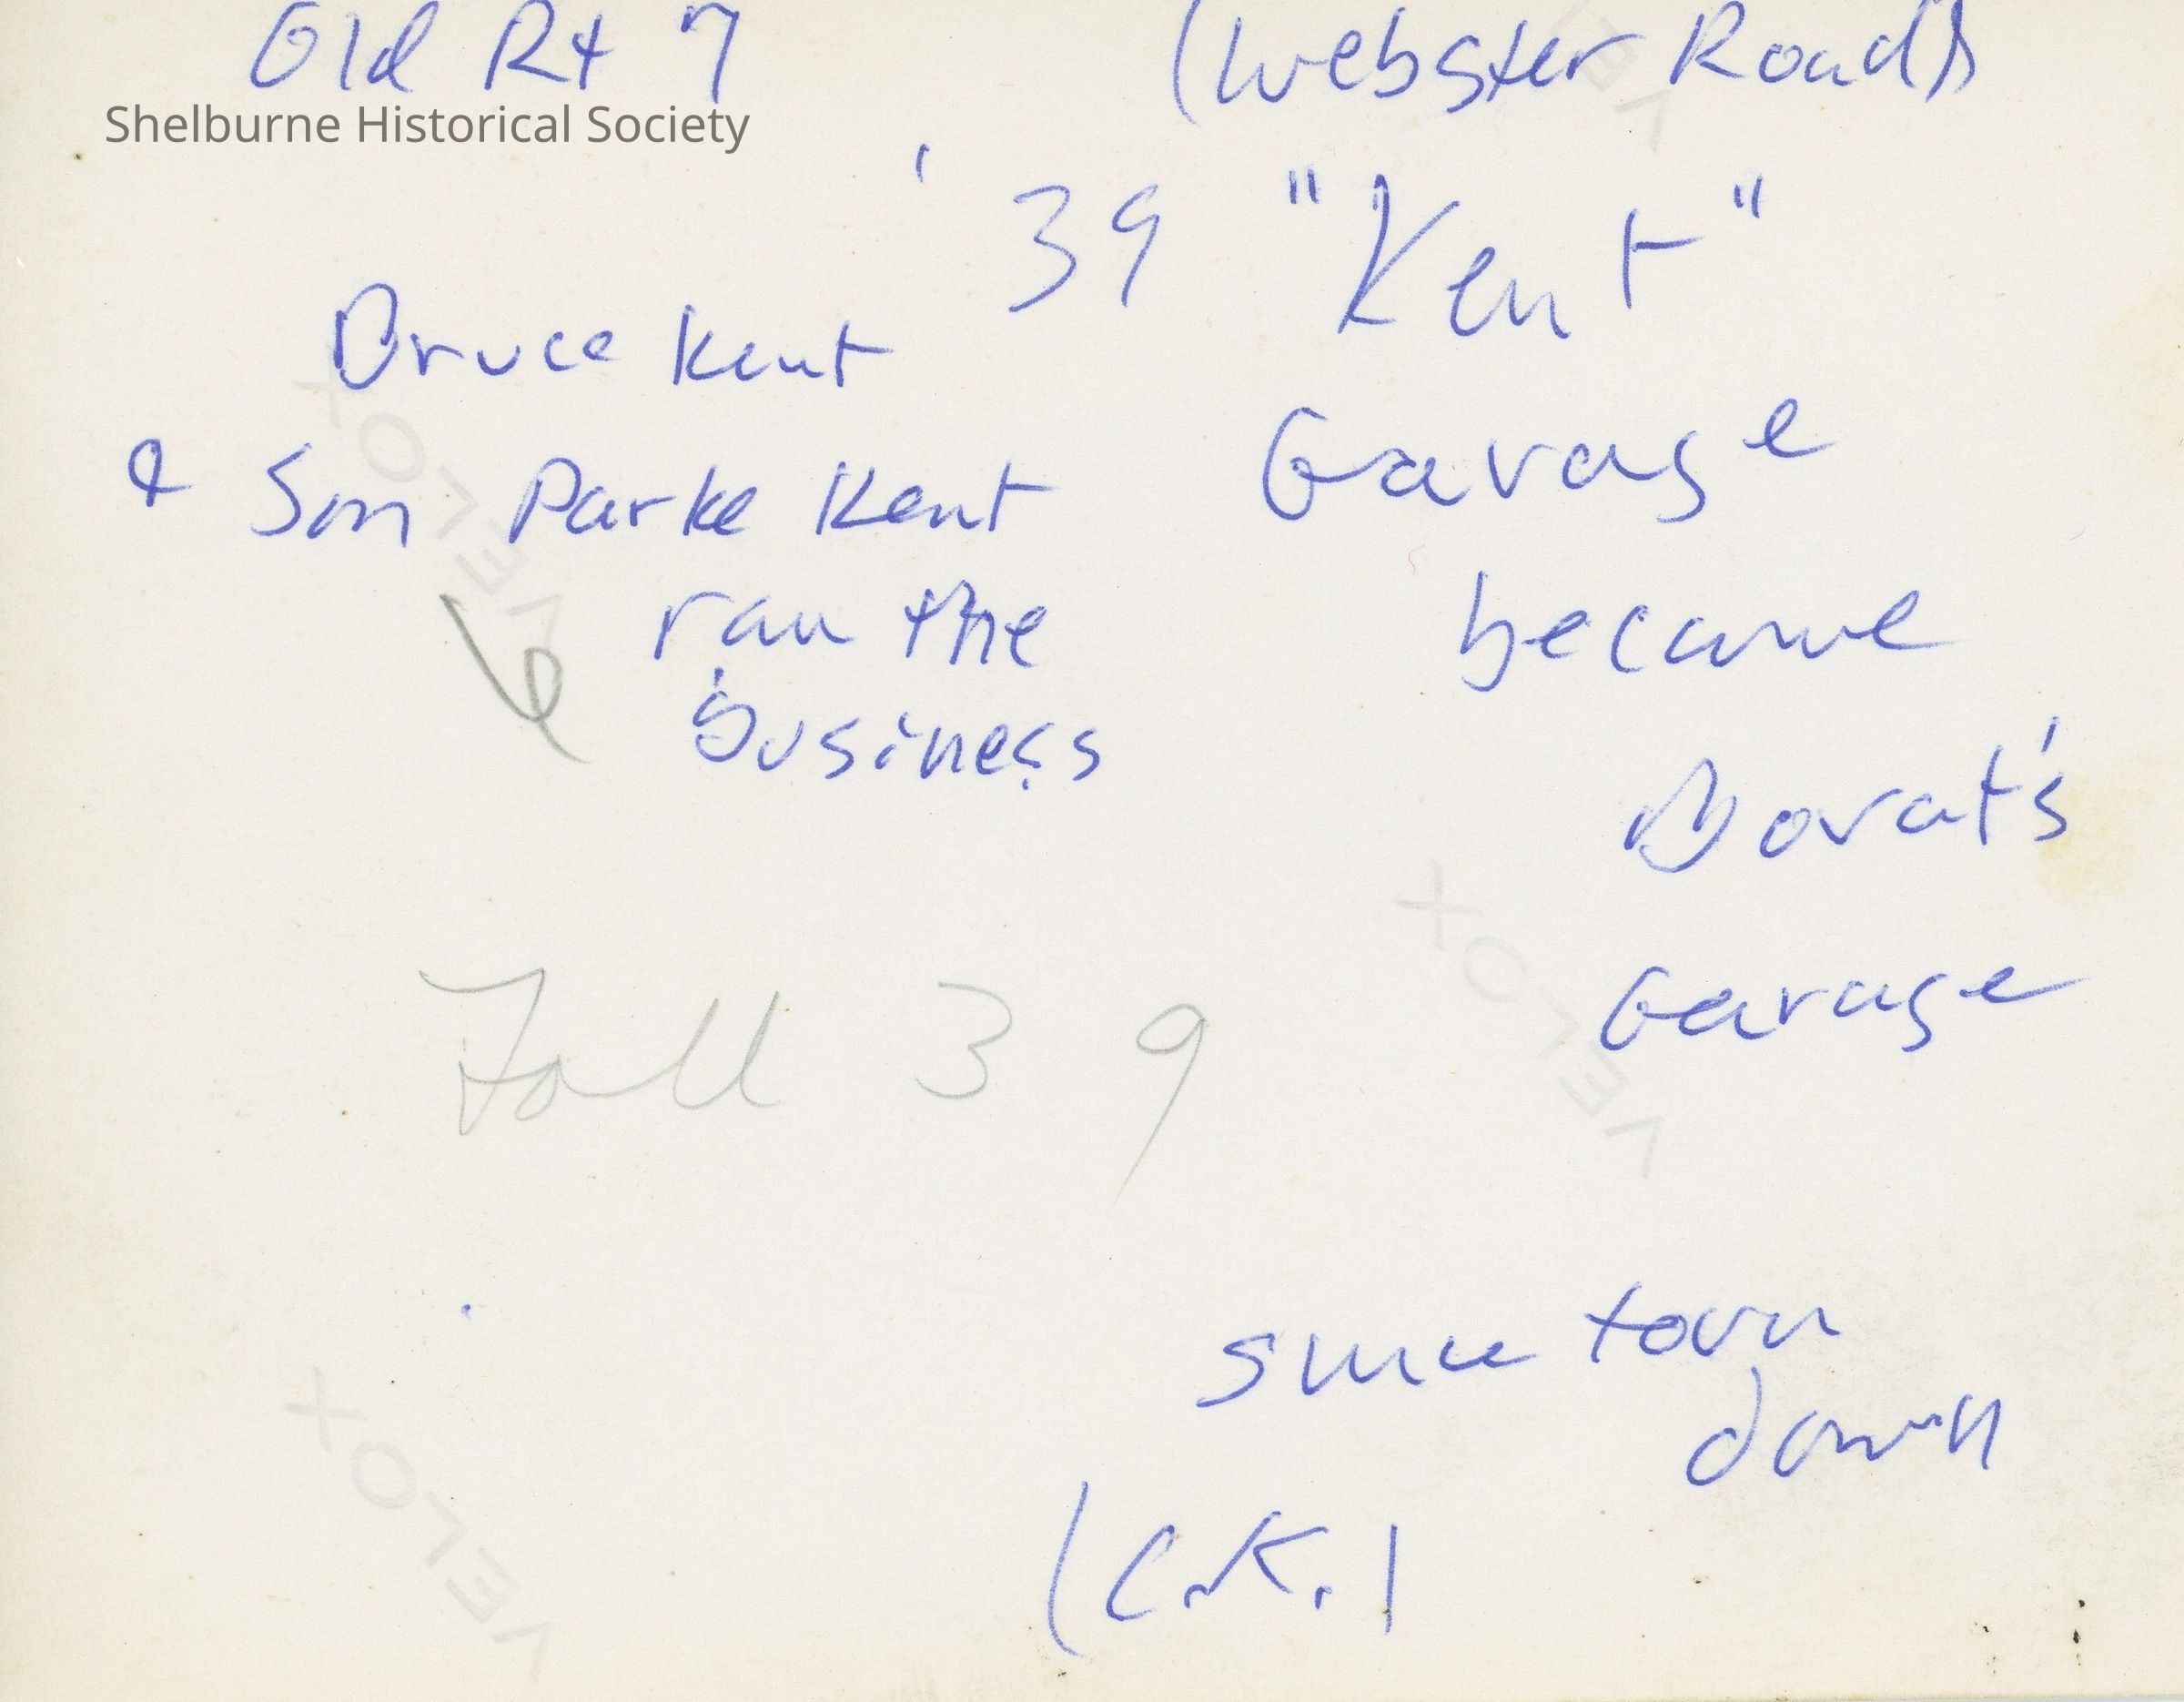 Old Rt 7 (Webster Road)
Shelburne Historical Society
'39 "Kent"
Bruce Kent
Garage
& Son Parke Kent
ran the
became
business
Dorat's
Garage
Fall 39
since torn
down
(C.K.)
VELOX
VELOX
VELOX